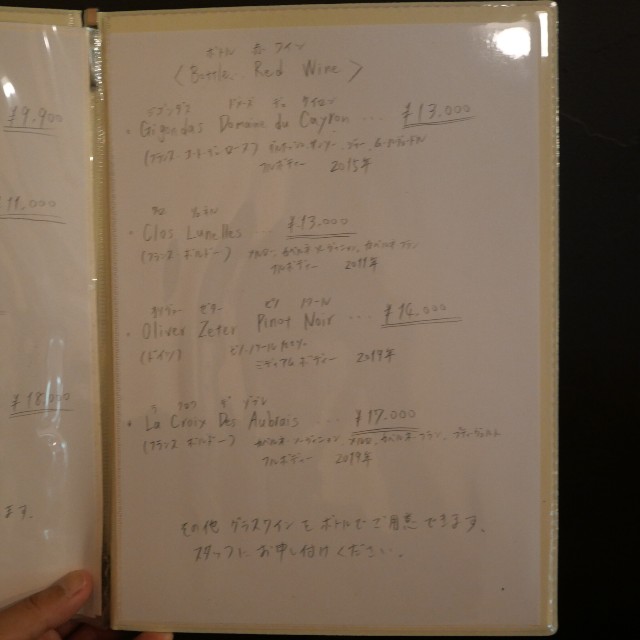 ¥9,900
¥11,000
¥18,000
ます。
ボトル 赤 ワイン
〈Bottle Red Wine〉
ジゴンダス ドメーヌ デュ ケイロン
・Gigondas Domaine du Cayron ... ¥13,000
(フランス
フルボディー 2015年
クロ リュネル
・Clos Lunelles ... ¥13,000
(フランス ボルドー) メルロ、カベルネ・ソーヴィニヨン、カベルネ・フラン
フルボディー 2011年
オリヴァー ゼター ピノ ノワール
・Oliver Zeter Pinot Noir ... ¥14,000
(ドイツ) ピノ・ノワール
ミディアムボディー
ラ クロワ デ
・La Croix Des ... ¥17,000
(フランス ボルドー) カベルネ・ソーヴィニヨン、メルロ、カベルネ・フラン、プティヴェルド
フルボディー 2019年
その他 グラスワインをボトルでご用意できます。
スタッフにお申し付けください。